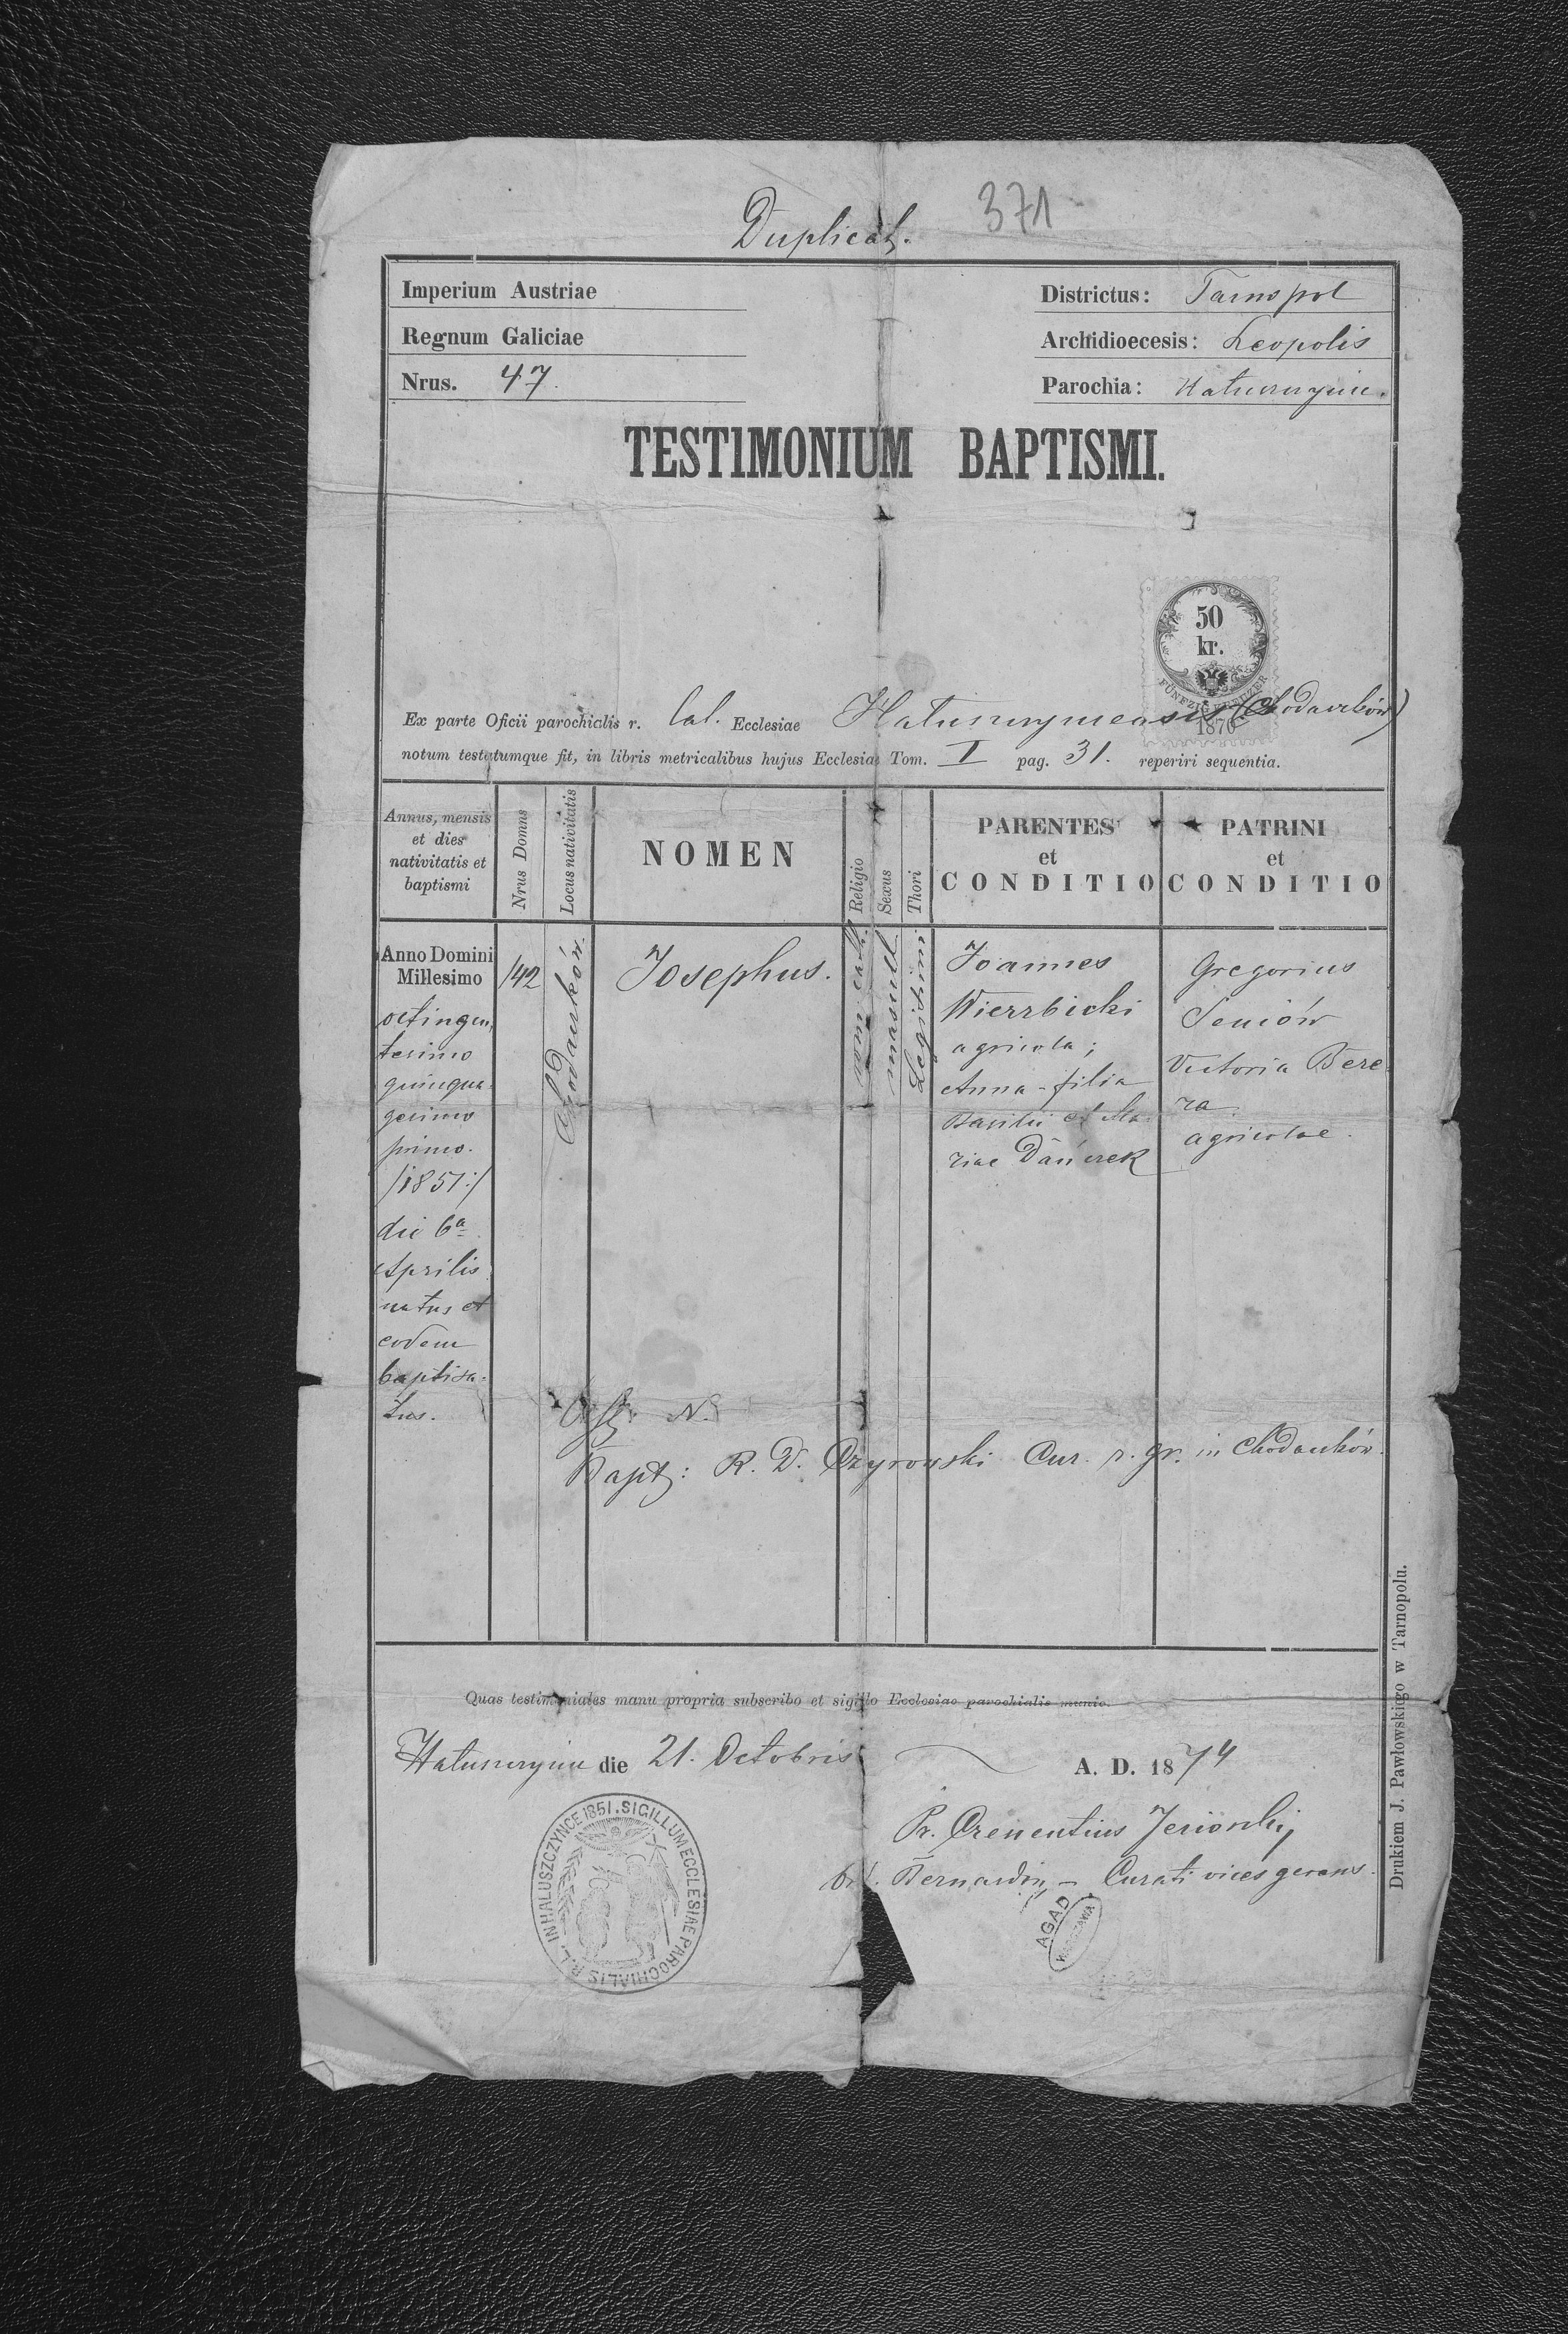 Duplicat. 371
Imperium Austriae
Regnum Galiciae
Nrus. 47.
Districtus: Tarnopol
Archidioecesis: Leopolis
Parochia:
TEST1MONIUM BAPTISMI.
50
kr.
FÜNFZIG KREUZER
1870
Ex parte Oficii parochialis r. lat. Ecclesiae
notum testatumque fit, in libris metricalibus hujus Ecclesiae Tom. I pag. 31. reperiri sequentia.
Annus, mensis
et dies
nativitatis et
baptismi
Nrus Domns
Locus nativitatis
NOMEN
Religio
Sexus
Thori
PARENTES
et
CONDITIO
PATRINI
et
CONDITIO
Anno Domini
Millesimo
octingen
tesimo
quinqua
gesimo
primo.
/1851:/
die 6a
Aprilis
natus et
eodem
baptisa-
tus.
142
Chodaczków.
Josephus.
rom. cath.
mascul
Legitimi
Joannes
Wierzbicki
agricola;
Anna - filia
Basilii et Ma
riae Dańczek
Gregorius
Seniów
Victoria Bere
za
agricolae.
Obst: N.
Bapt: R. D. Czyrowski Cur. r. gr. in Chodaczków.
Quas testimoniales manu propria subscribo et sigillo Ecclesiae parochialis munio.
die 21. Octobris A. D. 1874
SIGILLUM ECCLESIAE PAROCHIALIS R. L. IN HALUSZCZYNCE 1851.
Bernardin - Curati vices gerens.
AGAD
WARSZAWA
Drukiem J. Pawłowskiego w Tarnopolu.